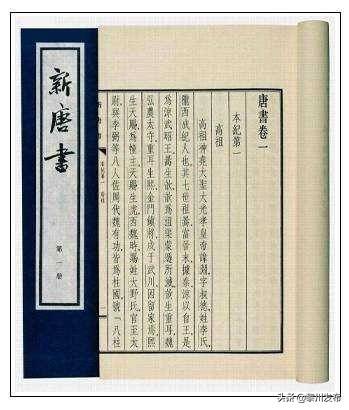 新唐書
第一册
唐書卷一
本紀第一
高祖
高祖神堯大聖大光孝皇帝諱淵，字叔德，姓李氏，
隴西成紀人也。其七世祖暠當晉末，據秦、涼以自王，是
爲涼武昭王。暠生歆，歆爲沮渠蒙遜所滅。歆生重耳，魏
弘農太守。重耳生熙，金門鎮將，戍于武川，因留家焉。熙
生天賜，爲幢主。天賜生虎，西魏時，賜姓大野氏，官至太
尉，與李弼等八人佐周代魏有功，皆爲柱國，號「八柱
头条 @州发布